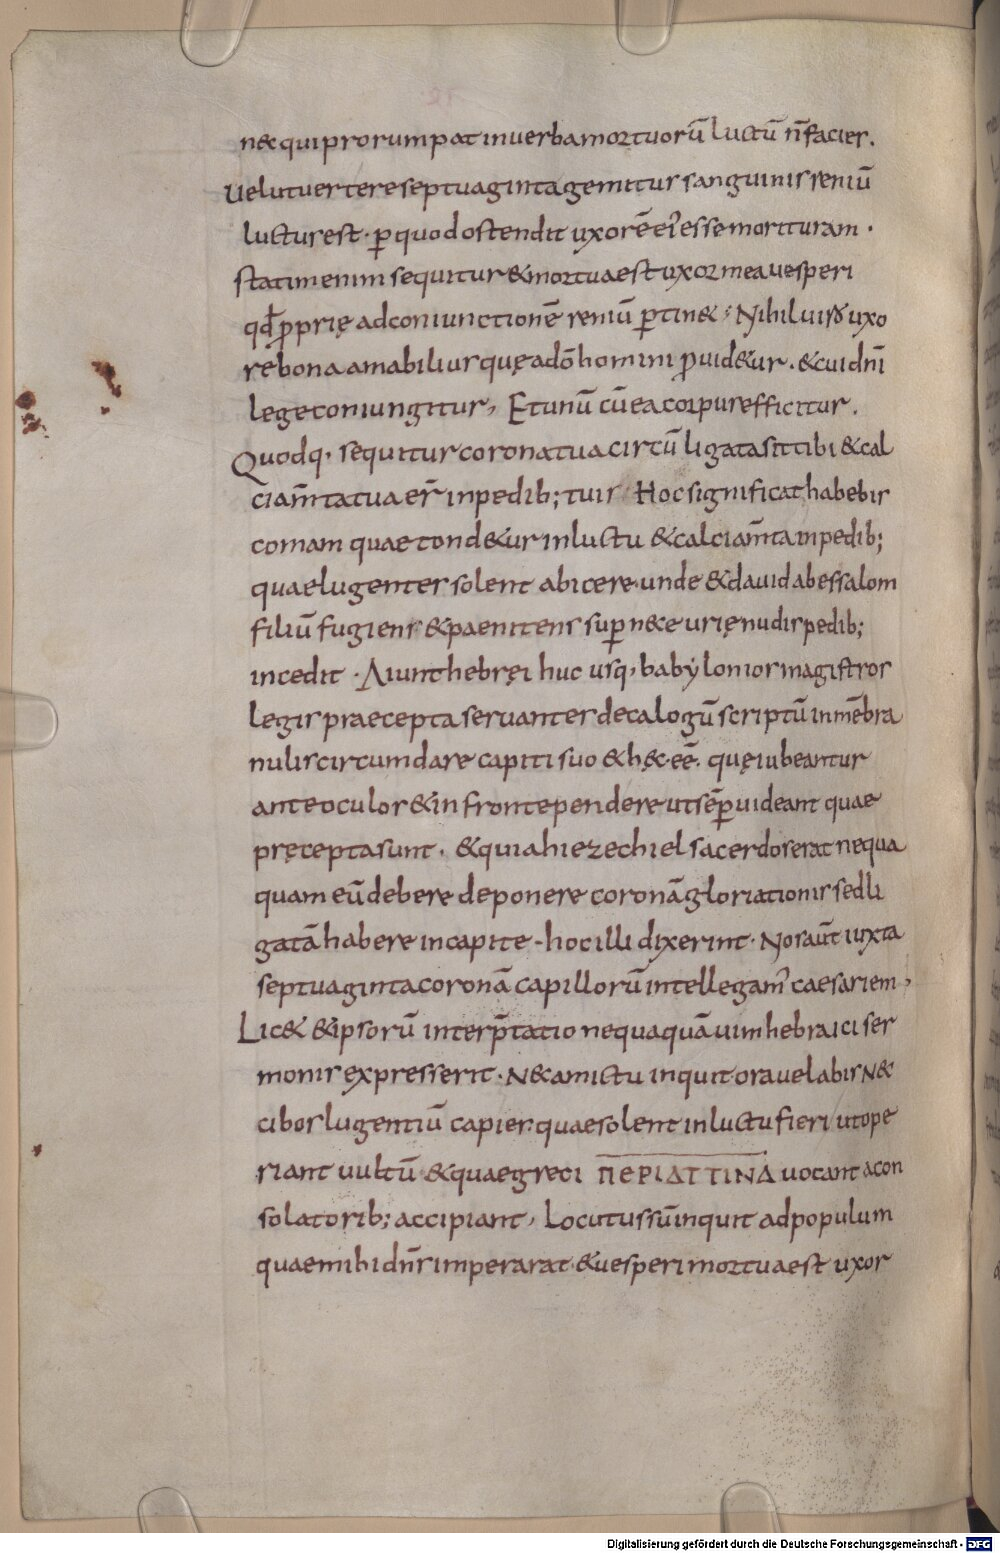 n& qui prorumpat in verba mortuorū luctū n̄ facies.
Uel ut vertere septuaginta gemitus sanguinis reniū
luctus est · ꝑ quod ostendit uxorē ei' esse morituram ·
statim enim sequitur & mortua est uxor mea vesperi
qđ ꝓprię ad coniunctionē reniū ꝑtin& ; Nihil viro uxo
re bona amabilius quę a dō homini ꝓvid&ur . & cui dn̄i
lege coniungitur, Et unū cū ea corpus efficitur .
Quodq, sequitur corona tua circū ligata sit tibi & cal
ciam̄ta tua er̄ in pedib; tuis Hoc significat habebis
comam quae tond&ur in luctu & calciam̄ta in pedib;
quae lugentes solent abicere · unde & david abessalom
filiū fugiens & paenitens suꝑ nece urię nudis pedib;
incedit · Aiunt hebręi huc usq, babylonios magistros
legis praecepta servantes decalogū scriptū in mēbra
nulis circumdare capiti suo & hęc · eē. quę iubeantur
ante oculos & in fronte pendere ut sēꝑ videant quae
pręcepta sunt . & quia hiezechiel sacerdos erat nequa
quam eū debere deponere coronā gloriationis sed li
gatā habere in capite - hoc illi dixerint · Nos aūt iuxta
septuaginta coronā capillorū intellegam' caesariem,
Lic& & ipsorū interp̄tatio nequaquā vim hebraici ser
monis expresserit · N& amictu inquit ora velabis N&
cibos lugentiū capies quae solent in luctu fieri ut ope
riant vultū & quae greci ΠΕΡΙΔΤΤΙΝΔ vocant a con
solatorib; accipiant, Locutus sū inquit ad populum
quae mihi dn̄s imperarat · & vesperi mortua est uxor
Digitalisierung gefördert durch die Deutsche Forschungsgemeinschaft - DFG